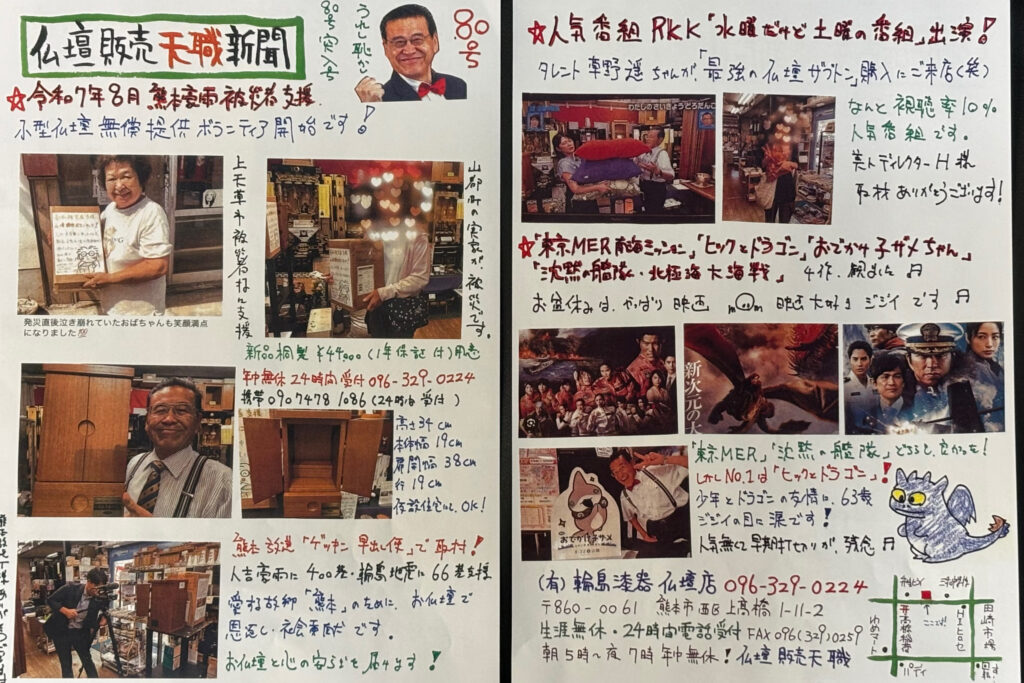 仏壇販売天職新聞
うれし恥かし
80号突入号
80号
☆令和7年8月 熊本豪雨被災者支援
小型仏壇無償提供ボランティア開始です!
上天草市被災者様に支援
山都町の実家が、被災です。
発災直後泣き崩れていたおばちゃんも笑顔満点
になりました💯
新品桐製 ¥44,000(1年保証付)用意
年中無休24時間受付096-329-0224
携帯 090 7478 1086 (24時間受付)
高さ34cm
本体幅19cm
扉開幅38cm
行19cm
仮設住宅にも、OK!
熊本放送「ゲツキン早出し便」で取材!
人吉豪雨に400基・輪島地震に66基支援
愛する故郷「熊本」のために、お仏壇で
恩返し・社会奉仕です。
お仏壇と心の安らぎを届けます!
☆人気番組RKK「水曜だけど土曜の番組」出演!
タレント草野遥ちゃんが、「最強の仏壇ザブトン」購入にご来店(笑)
わたしのさいきょうどろだんご
なんと視聴率10%
人気番組です。
美人ディレクターH様
取材ありがとうございます!
☆「東京MER南海ミッション」「ヒックとドラゴン」「おでかけ子ザメちゃん」
「沈黙の艦隊・北極海大海戦」4作、観ました
お盆休みは、やっぱり映画 映画大好きジジイです
新次元の
おでかけ子ザメ
「東京MER」「沈黙の艦隊」どちらも、良かった!
しかしNo.1は「ヒックとドラゴン」!
少年とドラゴンの友情に、63歳
ジジイの目に涙です!
人気無くて早期打ち切りが、残念
(有)輪島漆器仏壇店 096-329-0224
〒860-0061 熊本市西区上高橋1-11-2
生涯無休・24時間電話受付 FAX096(329)0259
朝5時~夜7時年中無休!仏壇販売天職
ここです!
高橋稲荷
ゆめマート
田崎市場